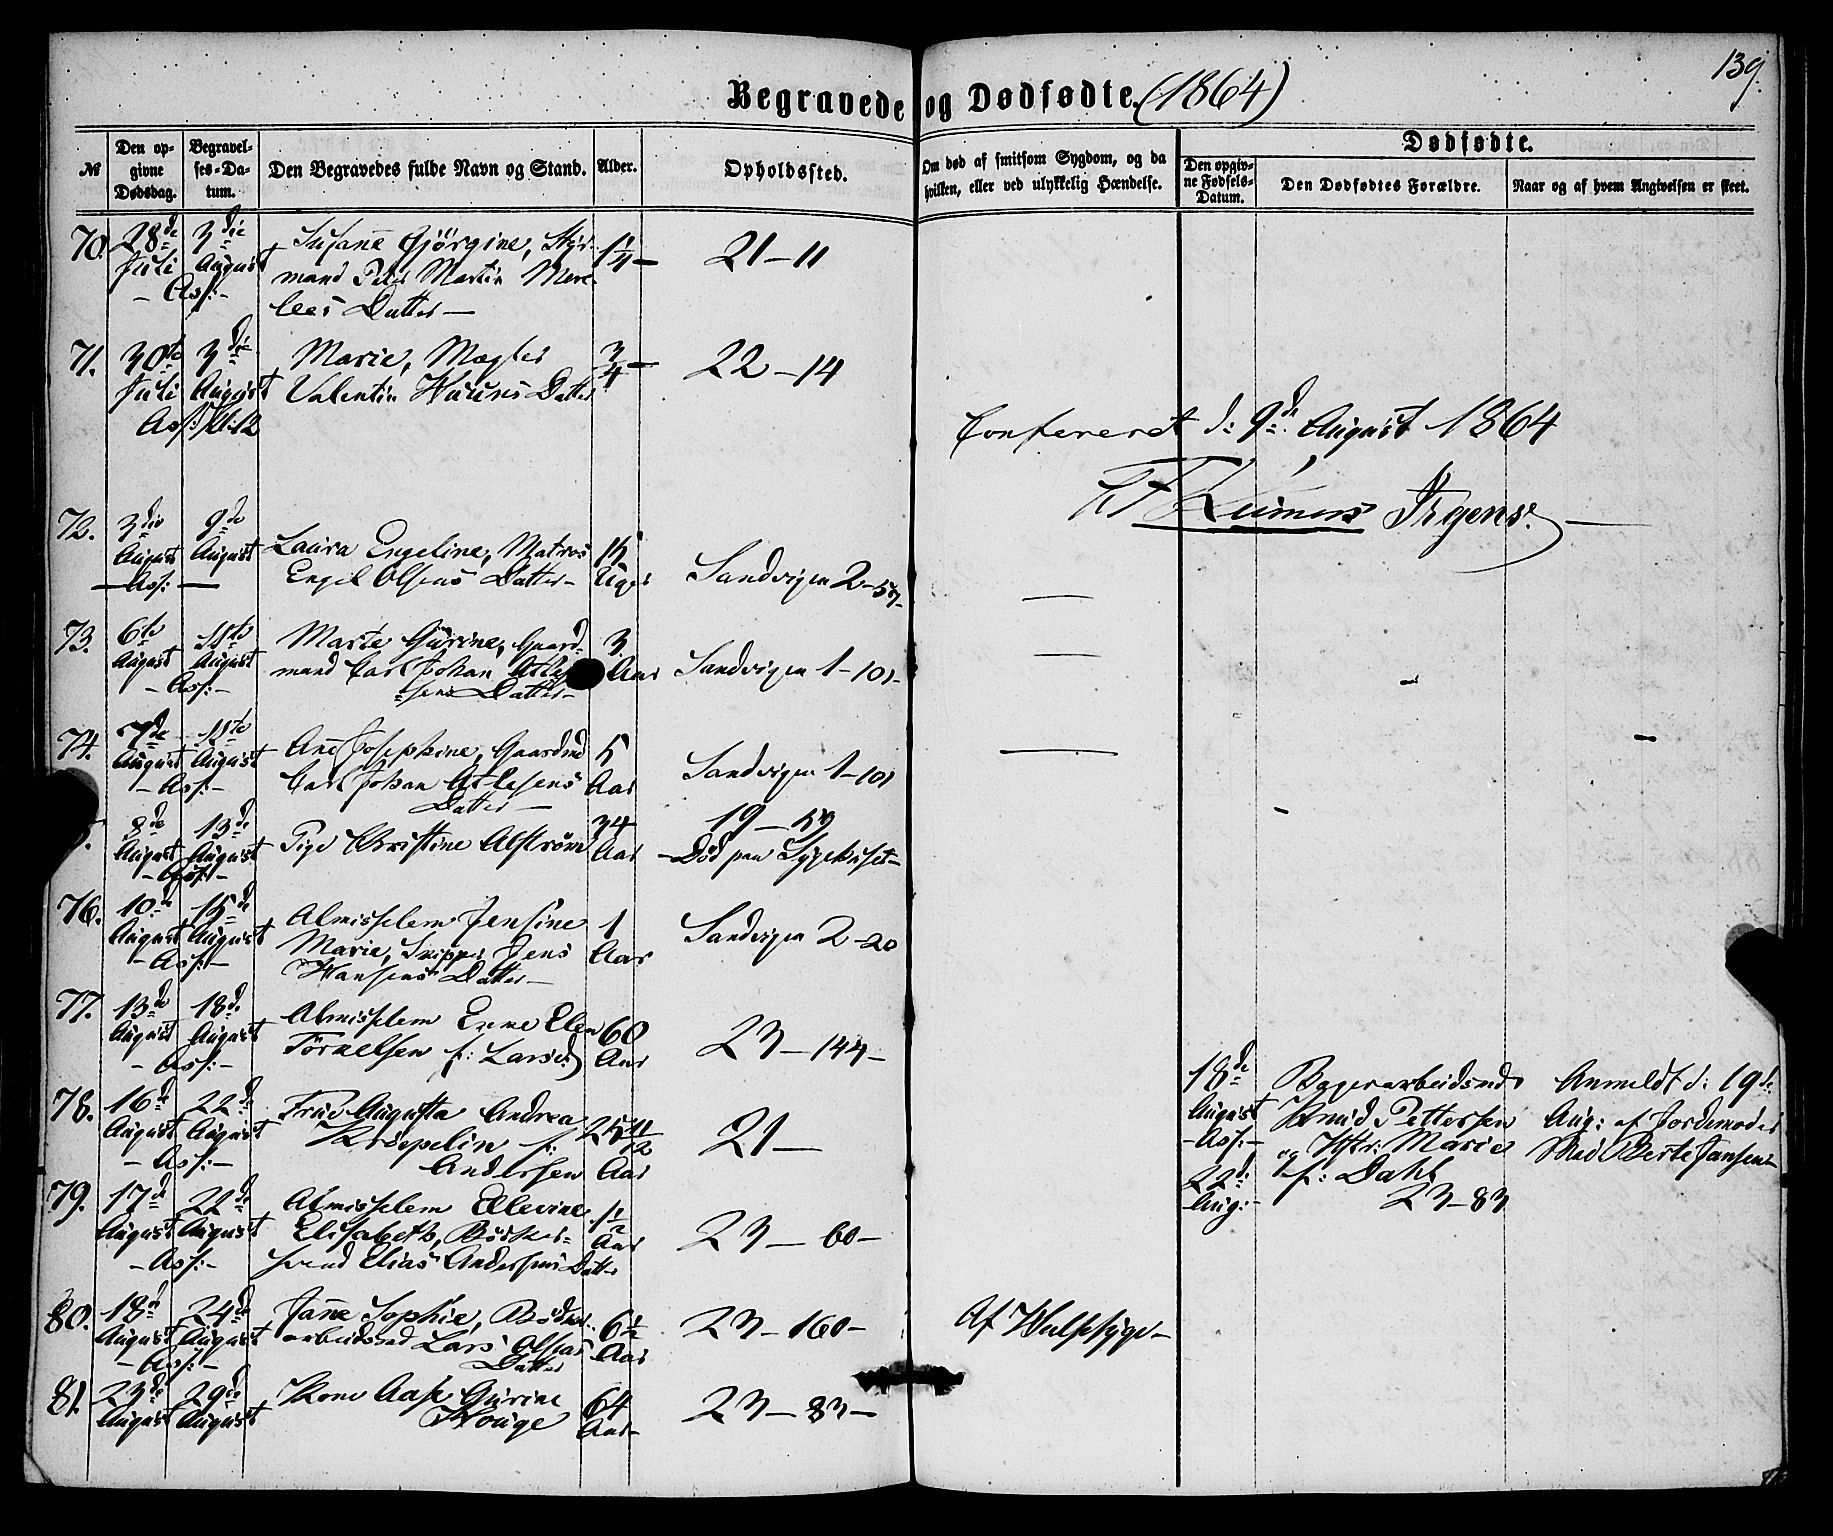 139.
Begravede og Dødfødte. (1864)
№
Den opgivne Dødsdag.
Begravelses-Datum.
Den Begravedes fulde Navn og Stand.
Alder.
Opholdssted.
Om død af smitsom Sygdom, og da hvilken, eller ved ulykkelig Hændelse.
Dødfødte.
Den opgivne Fødsels-Datum.
Den Dødfødtes Forældre.
Naar og af hvem Angivelsen er skeet.
70. 28de 3die Susanne Gjörgine, Styr- 1¼ 21–11
Juli August mand Peter Martin
– Ass:– Datter –
71. 30te 3die Marie, Mægler ¾ 22–14
Juli August Valentin Datter
Ass: Kl: 12
Confereret d: 9de August 1864
Irgens.
72. 3die 9de Laura Engeline, Matros 15
August August Engel Olsens Datter – Uger Sandvigen 2–57–
– Ass: –
73. 6te 11te Marie Gurine, Gaard- 3
August August mand Carl Johan Aar Sandvigen 1–101–
– Ass:– sens Datter –
74. 7de 11te Ane Josephine, Gaardmd 5
August August Carl Johan Atlesens Aar Sandvigen 1–101
– Ass:– Datter –
8de 13de Pige Christine Alström 34 19–59
August August Aar – Død paa Sygehuset –
– Ass:–
76. 10de 15de Almisselem Jensine 1 Sandvigen 2–20
August August Marie, Jens Aar
– Ass:– Hansens Datter –
77. 13de 18de Almisselem Enne Elen 60
August August Törnelsen f: Larsen) Aar 23–144–
– Ass:–
78. 16de 22de Frue Augusta Andrea 25 11/12
August August Kröepelin f: 21–
– Ass:– Andersen Aar
79. 17de 22de Almisselem Ellevine 1½
August August Elisabeth, Bödker- Aar 23–60–
– Ass:– svend Elias Andersens Datter
80. 18de 24de Janne Sophie, 6½ 23–160– Af Halssyge–
August August arbeidsmd Lars Olsens Aar
– Ass:– Datter
81. 23de 29de Kone Aase Gurine 64 23–83–
August August Houge Aar–
18de
August
– Ass:–
22de
Aug:–
Knud Pettersen
og Hstr: Marie
f: Dahl
23–83
Anmeldt d: 19de
Aug: af Jordemoder
Mad Berte Jansen–